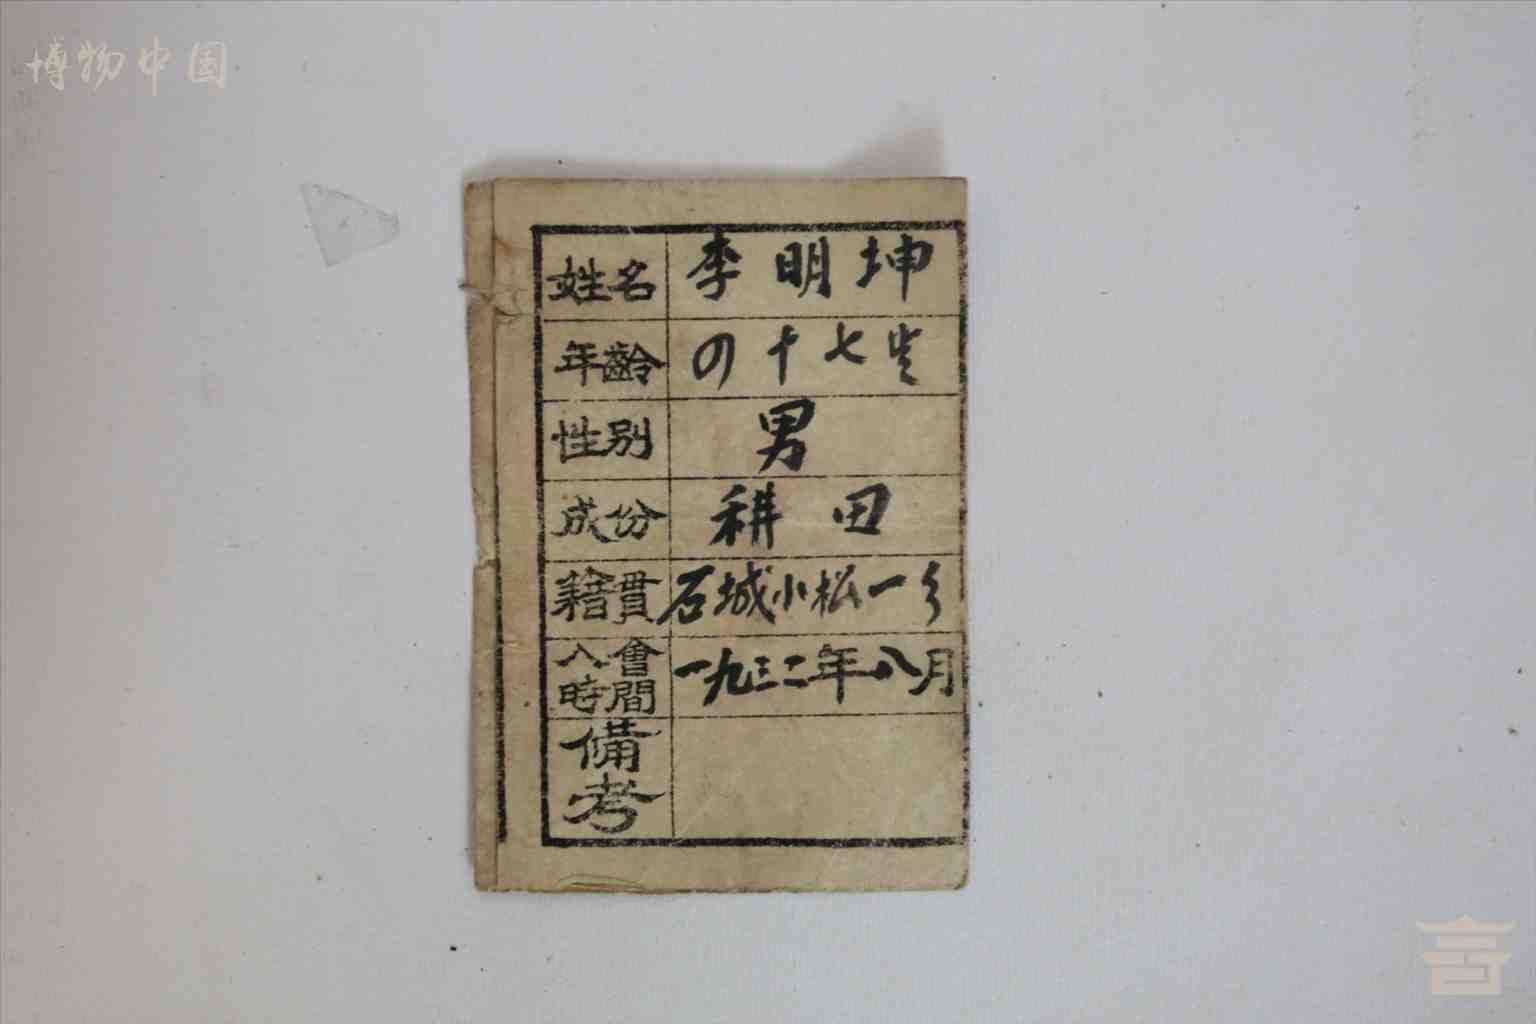 博物中国
姓名 李明坤
年齡 四十七岁
性別 男
成份 耕田
籍貫 石城小松一乡
入會時間 一九三二年八月
備考